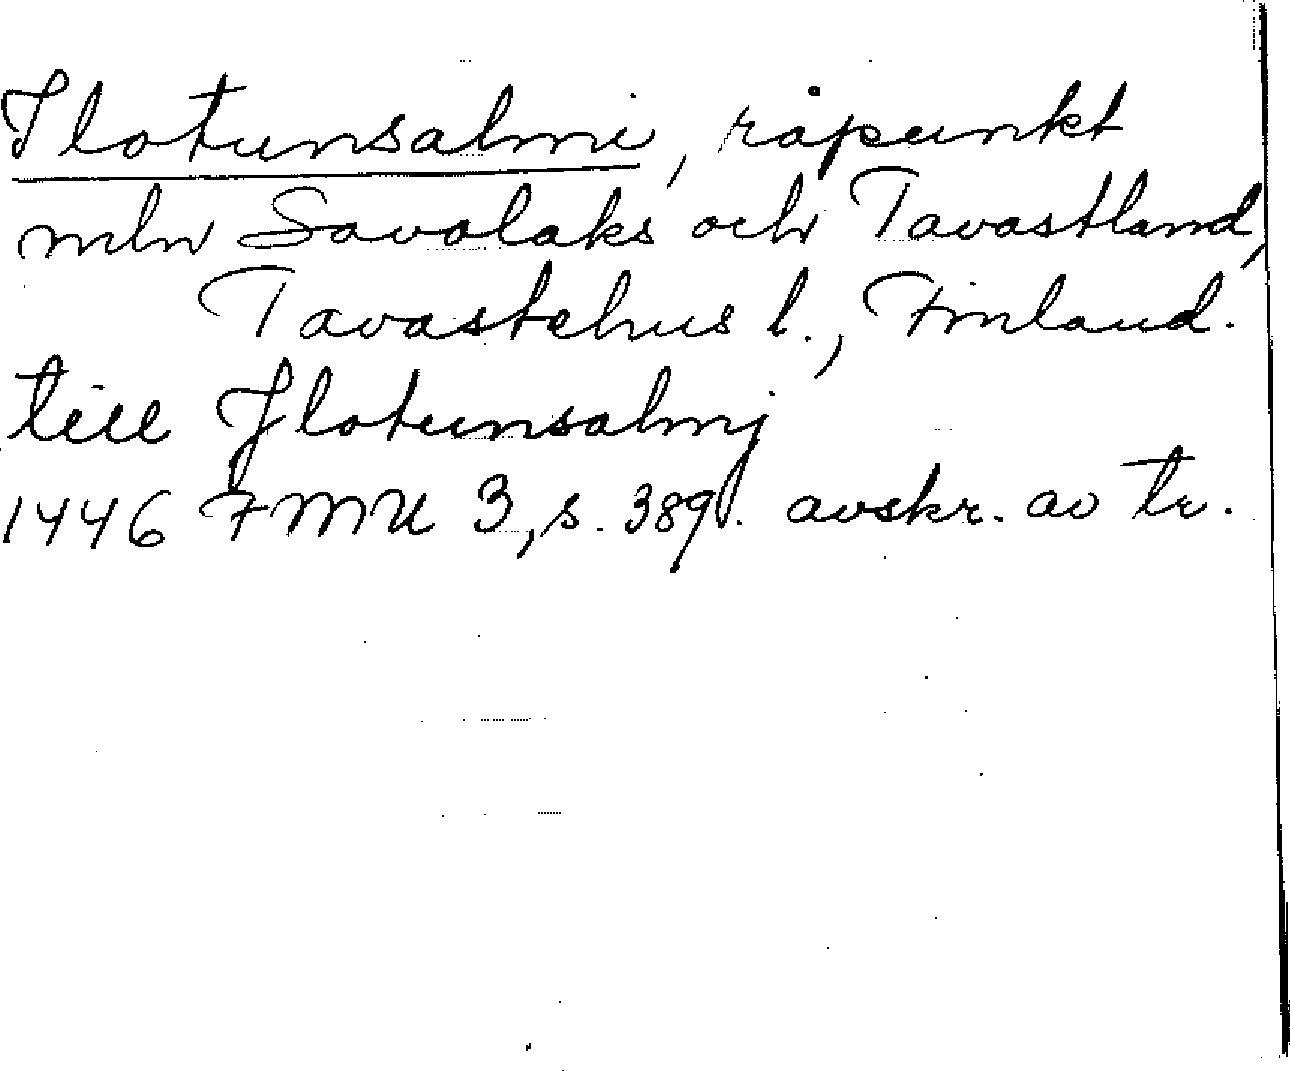 Ilotunsalmi, råpunkt
mln Savolaks och Tavastland,
Tavastehus l., Finland.
till Jlotunsalmj
1446 FMU 3, s. 389. avskr. av tr.